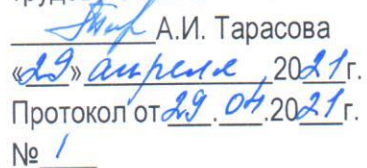 А.И. Тарасова
«29» апреля 2021г.
Протокол от 29.04.2021г.
№ 1